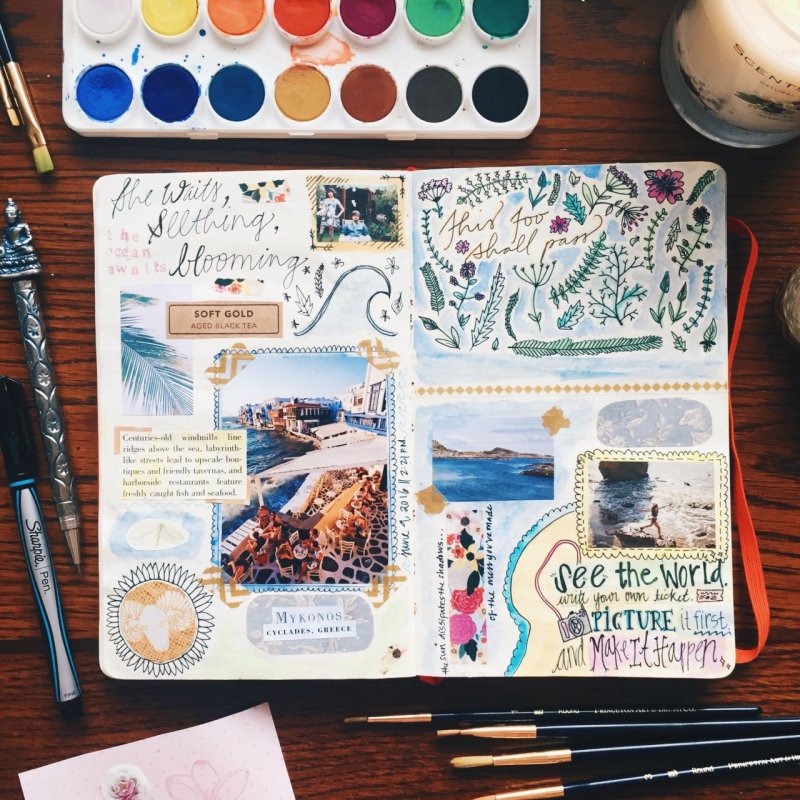 SCENTS
NATURAL
She Waits,
Seething,
blooming
the
ocean
awaits
SOFT GOLD
AGED BLACK TEA
Centuries-old windmills line
ridges above the sea, labyrinth-
like streets lead to upscale bou-
tiques and friendly tavernas, and
harborside restaurants feature
freshly caught fish and seafood.
June 9, 2016 || 2:21 p.m.
MYKONOS
CYCLADES, GREECE
this too
shall pass
the sun dissipates the shadows...
of the mess you've made
See the World.
with your own ticket.
PICTURE it first
and Make It Happen
Sharpie Pen.
FINE
ROUND PRINCETON ART & BRUSH CO.
Round